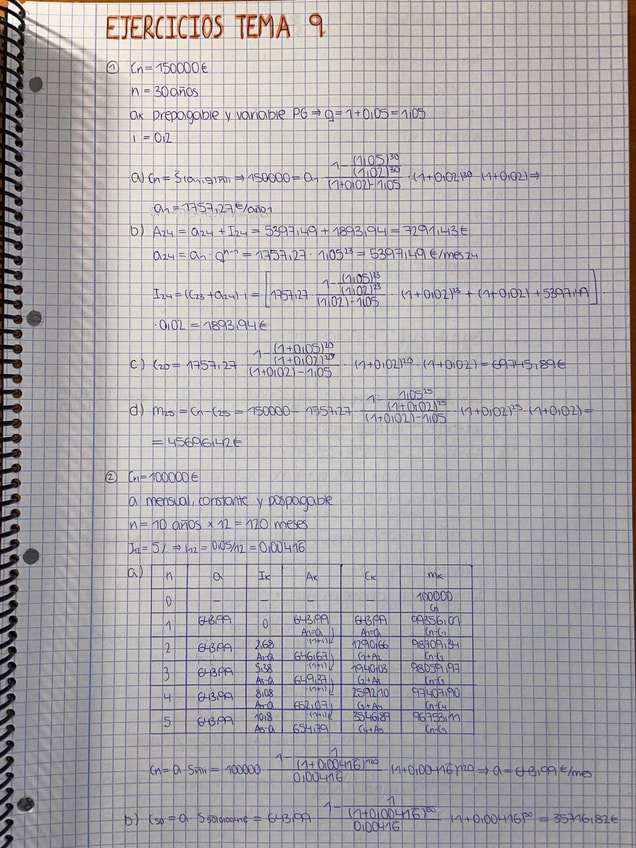 EJERCICIOS TEMA 9
① Cn = 150000€
n = 30 años
ak prepagable y variable PG ⇒ q = 1+0,05 = 1,05
i = 0,2
a) Cn = S̈(a1,q)n¬i ⇒ 150000 = a1 · (1 - (1,05)^30/(1,02)^30)/((1+0,02)-1,05) · (1+0,02)^30 · (1+0,02) ⇒
a1 = 1757,27€/año1
b) A24 = a24 + I24 = 5397,49 + 1893,94 = 7291,43€
a24 = a1 · q^n-1 = 1757,27 · 1,05^23 = 5397,49 €/mes24
I24 = (C23 + a24) · i = [1757,27 (1 - (1,05)^23/(1,02)^23)/((1,02)-1,05) · (1+0,02)^23 + (1+0,02) + 5397,49] ·
· 0,02 = 1893,94€
c) C20 = 1757,27 (1 - (1+0,05)^20/(1+0,02)^20)/((1+0,02)-1,05) · (1+0,02)^20 · (1+0,02) = 69745,89€
d) M25 = Cn - C25 = 150000 - 1757,27 (1 - 1,05^25/(1+0,02)^25)/((1+0,02)-1,05) · (1+0,02)^25 · (1+0,02) =
= 45696,42€
② Cn = 100000€
a mensual, constante y pospagable
n = 10 años × 12 = 120 meses
J12 = 5% ⇒ i12 = 0,05/12 = 0,00416
a) n a Ik Ak Ck mk
0 - - - - 100000 Cn
1 643,99 0 643,99 A1=a 643,99 A1=a 99356,01 Cn-C1
2 643,99 2,68 A2-a 646,67 (1+i) 1290,66 C1+A2 98709,34 Cn-C2
3 643,99 5,38 A3-a 649,37 (1+i) 1940,03 C2+A3 98059,97 Cn-C3
4 643,99 8,08 A4-a 652,07 (1+i) 2592,10 C3+A4 97407,90 Cn-C4
5 643,99 10,8 A5-a 654,79 (1+i) 3246,89 C4+A5 96753,11 Cn-C5
Cn = a · Sn¬i = 100000 (1 - 1/(1+0,00416)^120)/0,00416 · (1+0,00416)^120 ⇒ a = 643,99 €/mes
b) C50 = a · S50¬0,00416 = 643,99 (1 - 1/(1+0,00416)^50)/0,00416 · (1+0,00416)^50 = 35716,82€